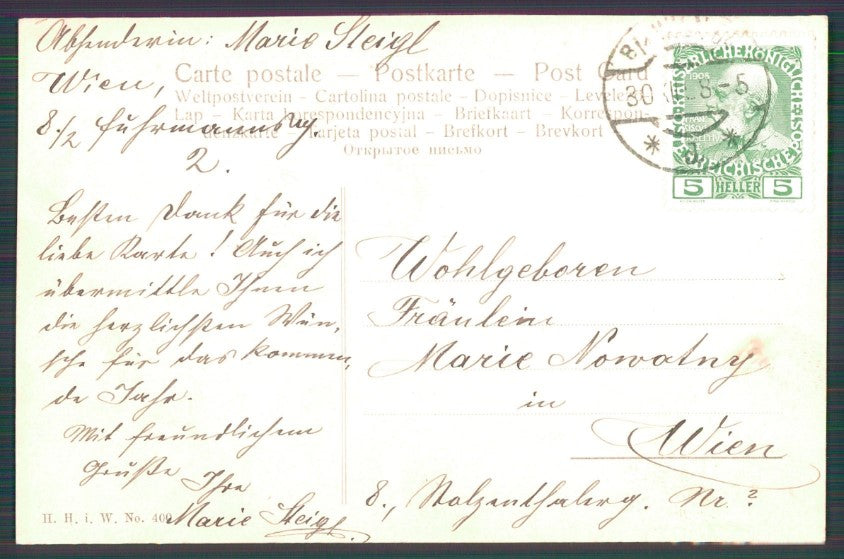 Absenderin: Marie Steigl
Wien,
8./2 Fuhrmannsg.
2.
Carte postale — Postkarte — Post Card
Weltpostverein — Cartolina postale — Dopisnice — Levelező
Lap — Karta korespondencyjna — Briefkaart — Korrespon
denzkarte — Tarjeta postal — Brefkort — Brevkort
Открытое письмо
30 8-5
1908
KAISERLICHE KÖNIGLICHE
ÖSTERREICHISCHE
5 HELLER 5
Besten Dank für die
liebe Karte! Auch ich
übermittle Ihnen
die herzlichsten Wün-
sche für das kommen-
de Jahr.
Mit freundlichem
Gruße Ihre
Marie Steigl.
Wohlgeboren
Fräulein
Marie Nowotny
in
Wien
8., Stolzenthalerg. Nr. ?
H. H. i. W. No. 409